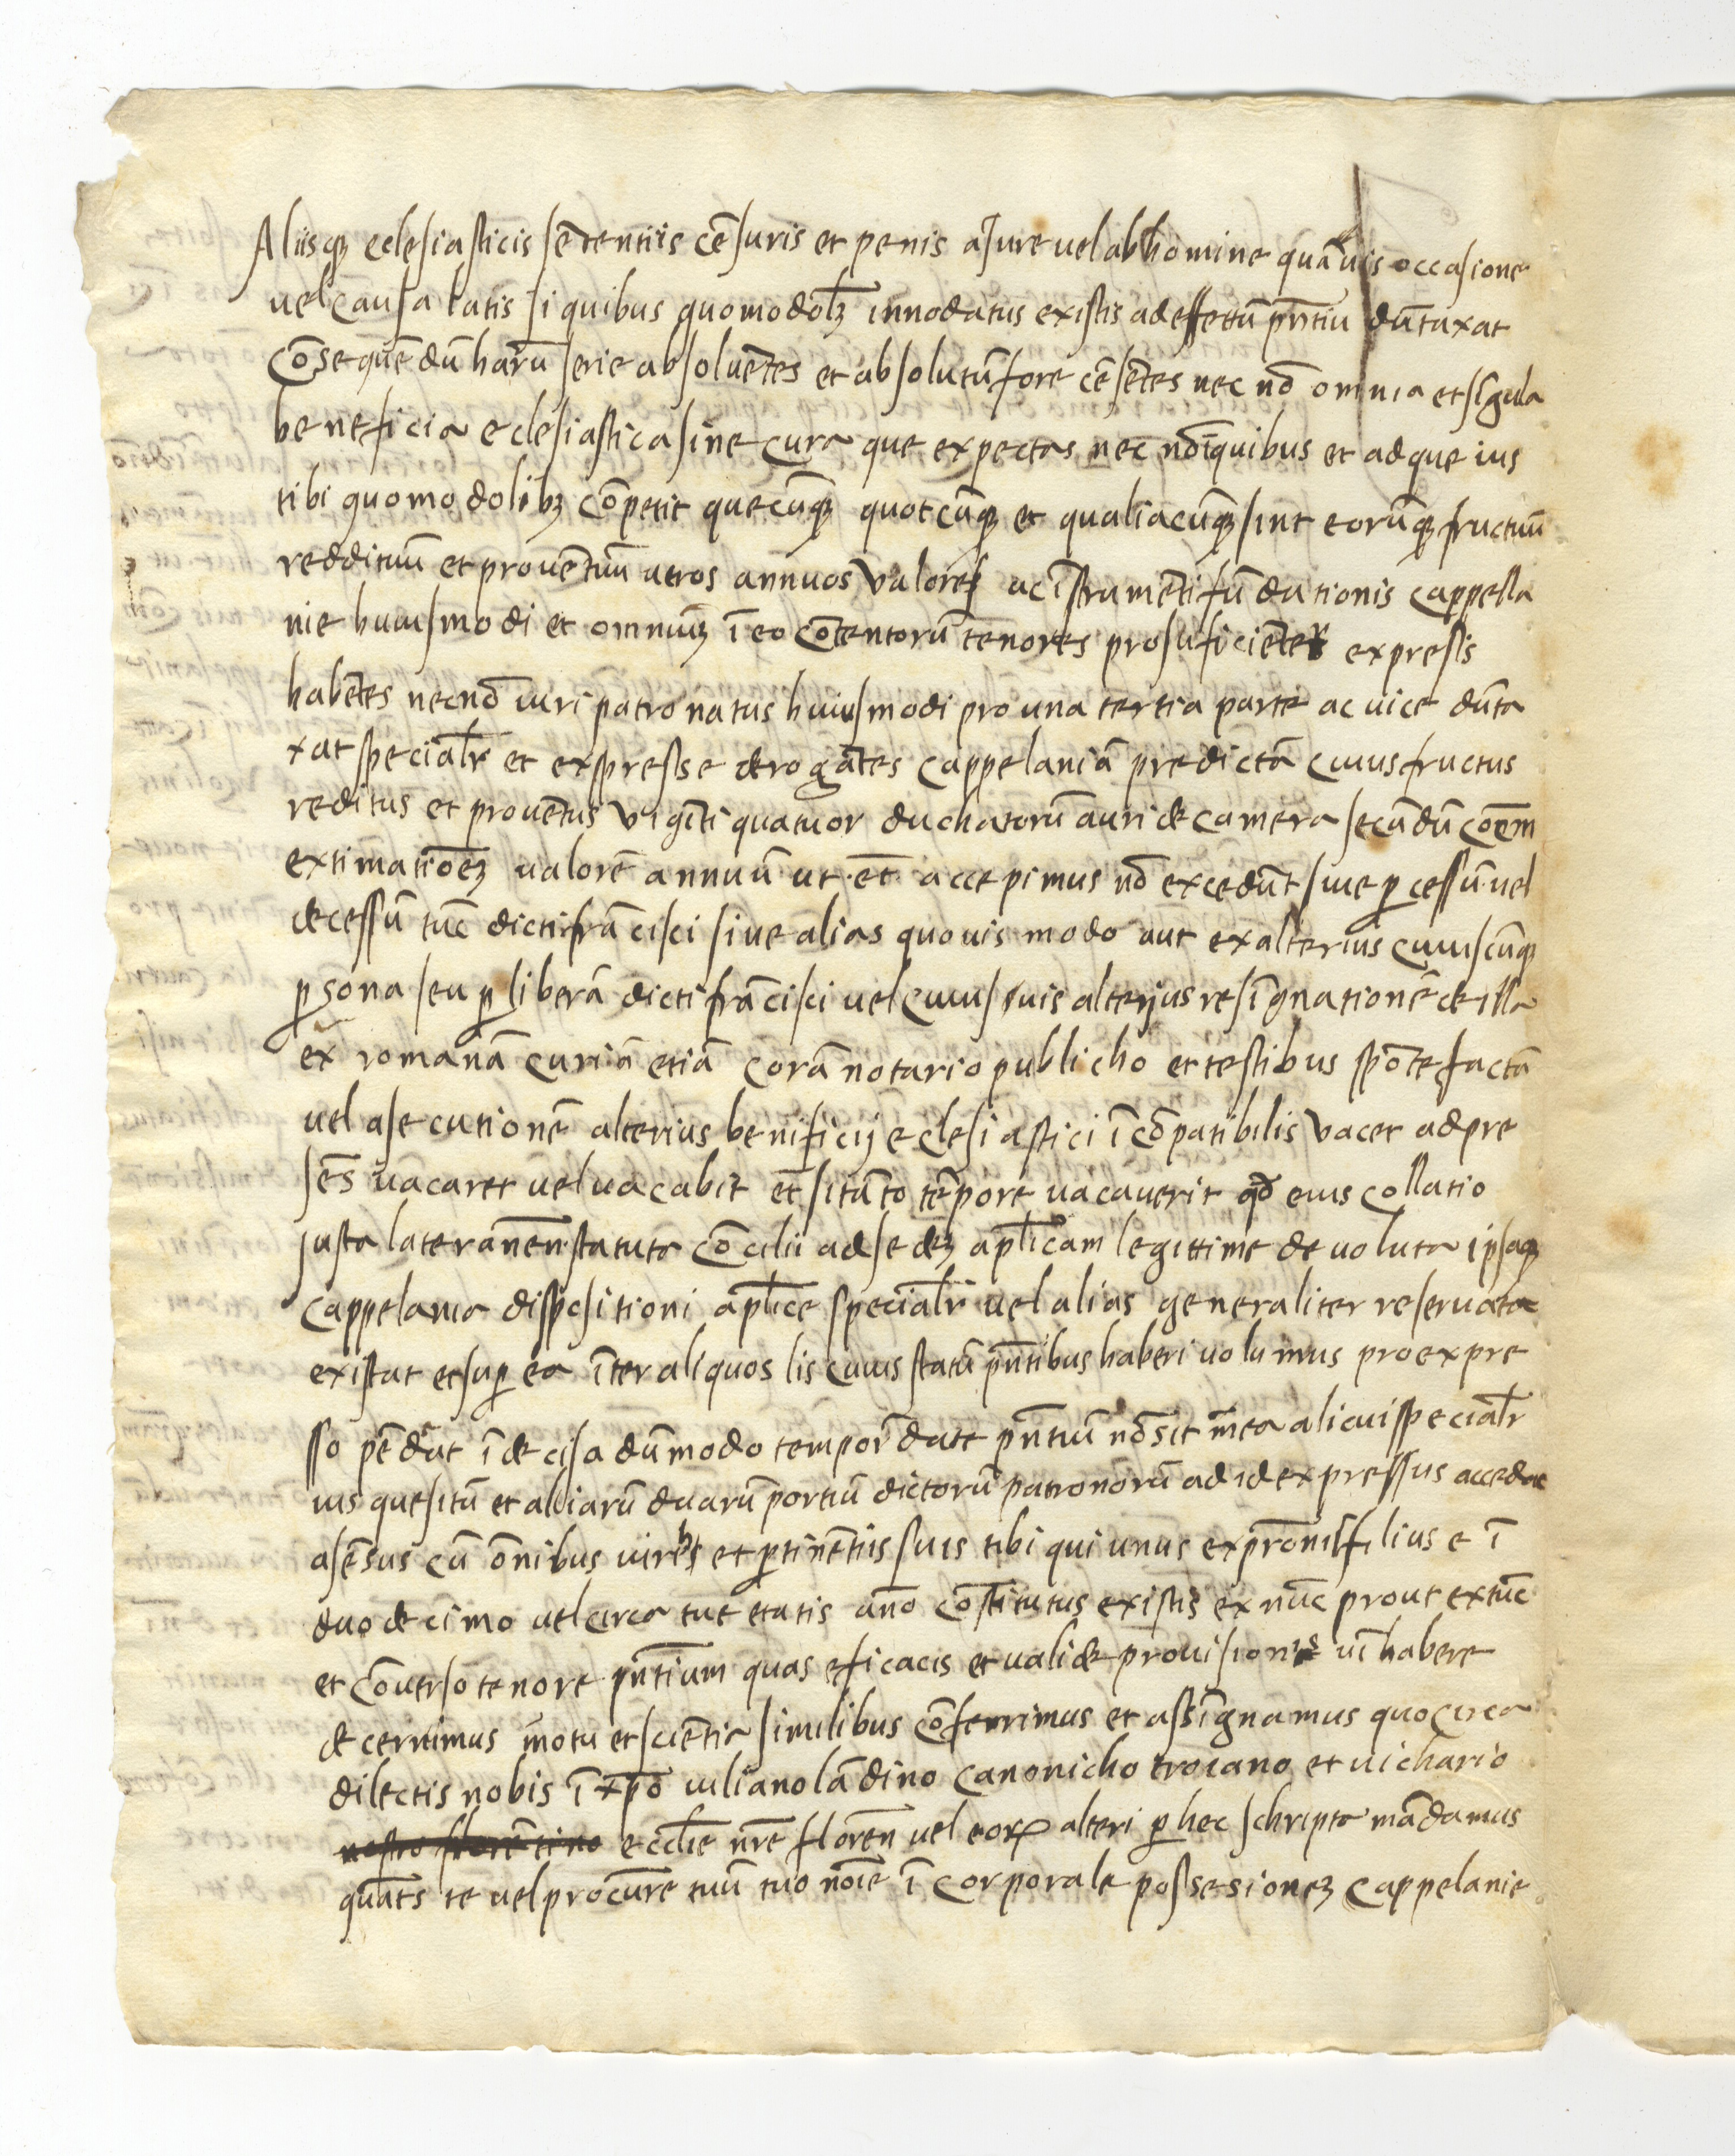 Aliisqꝫ eclesiasticis sētentiis cēsuris et penis a Jure vel ab homine quāuis occasione
uel causa latis si quibus quomodolꝫ innodatus existis ad effettū pn̄tiū dūtaxat
Cōsequēdū harū serie absoluētes et absolutū fore cēsētes nec nō omnia et sīgula
beneficia eclesiastica sine cura que expectas nec nō ī quibus et ad que ius
tibi quomodolibꝫ cōpetit quecūqꝫ quotcūqꝫ et qualiacūqꝫ sint eorūqꝫ fructuū
reddituū et prouētuū ueros annuos valores ac īstrumēti fūdationis cappella
nie huiusmodi et omniuꝫ ī eo cōtentorū tenores pro suficiēter expresis
habētes necnō iuri patronatus huiusmodi pro una tertia parte ac uice dūta
xat specialr̄ et expresse derogātes cappelaniā predictā cuius fructus
reditus et prouētus vigīti quatuor duchatorū auri de camera secūdū cōem
extimatiōeꝫ ualorē annuū ut et̄ accepimus nō excedūt siue p̱ cessū uel
decessū tūc dicti frācisci siue alias quouis modo aut ex alterius cuiuscūqꝫ
p̱sona seu p̱ liberā dicti frācisci uel cuiusuis alterius resīgnationē de illa
ex romanā curiā etiā corā notario publicho et testibus spōte factā
uel asecutionē alterius benificij eclesiastici īcōpatibilis vacet ad pre
sēs uacaret uel uacabit et si tāto tēpore uacauerit qd̄ eius collatio
justa lateranēn statuta cōcilii ad sedeꝫ ap̄licam legittime deuoluta ipsaqꝫ
cappelania dispositioni ap̄lice specialr̄ uel alias generaliter reseruata
existat et sup̱ ea īter aliquos lis cuius statū pn̄tibus haberi uolumus pro expre
sso pēdeat īdecisa dūmodo tempor̄ date pn̄tiū nō sit ī ea alicui specialr̄
ius quesitū et aliarū duarū portiū dictorū patronorū ad id expressus accedat
asēsus cū ōnibus iuribs et p̱tinētiis suis tibi qui unus ex pronīs filius e ī
duodecimo uel circa tue etatis āno cōstitutus existis ex nūc prout ex tūc
et cōuerso tenore pn̄tium quas eficacis et ualide prouisionis uī habere
decernimus motu et sciētia similibus cōferrimus et assīgnamus quocirca
dilectis nobis ī xp̄o iuliano lādino canonicho troiano et uichario
nostro florētino ecclīe nr̄e florēn uel eorꝝ alteri p̱ hec schripta mādamus
quat̄s te uel procure tuū tuo noīe ī corporale possesioneꝫ cappelanie